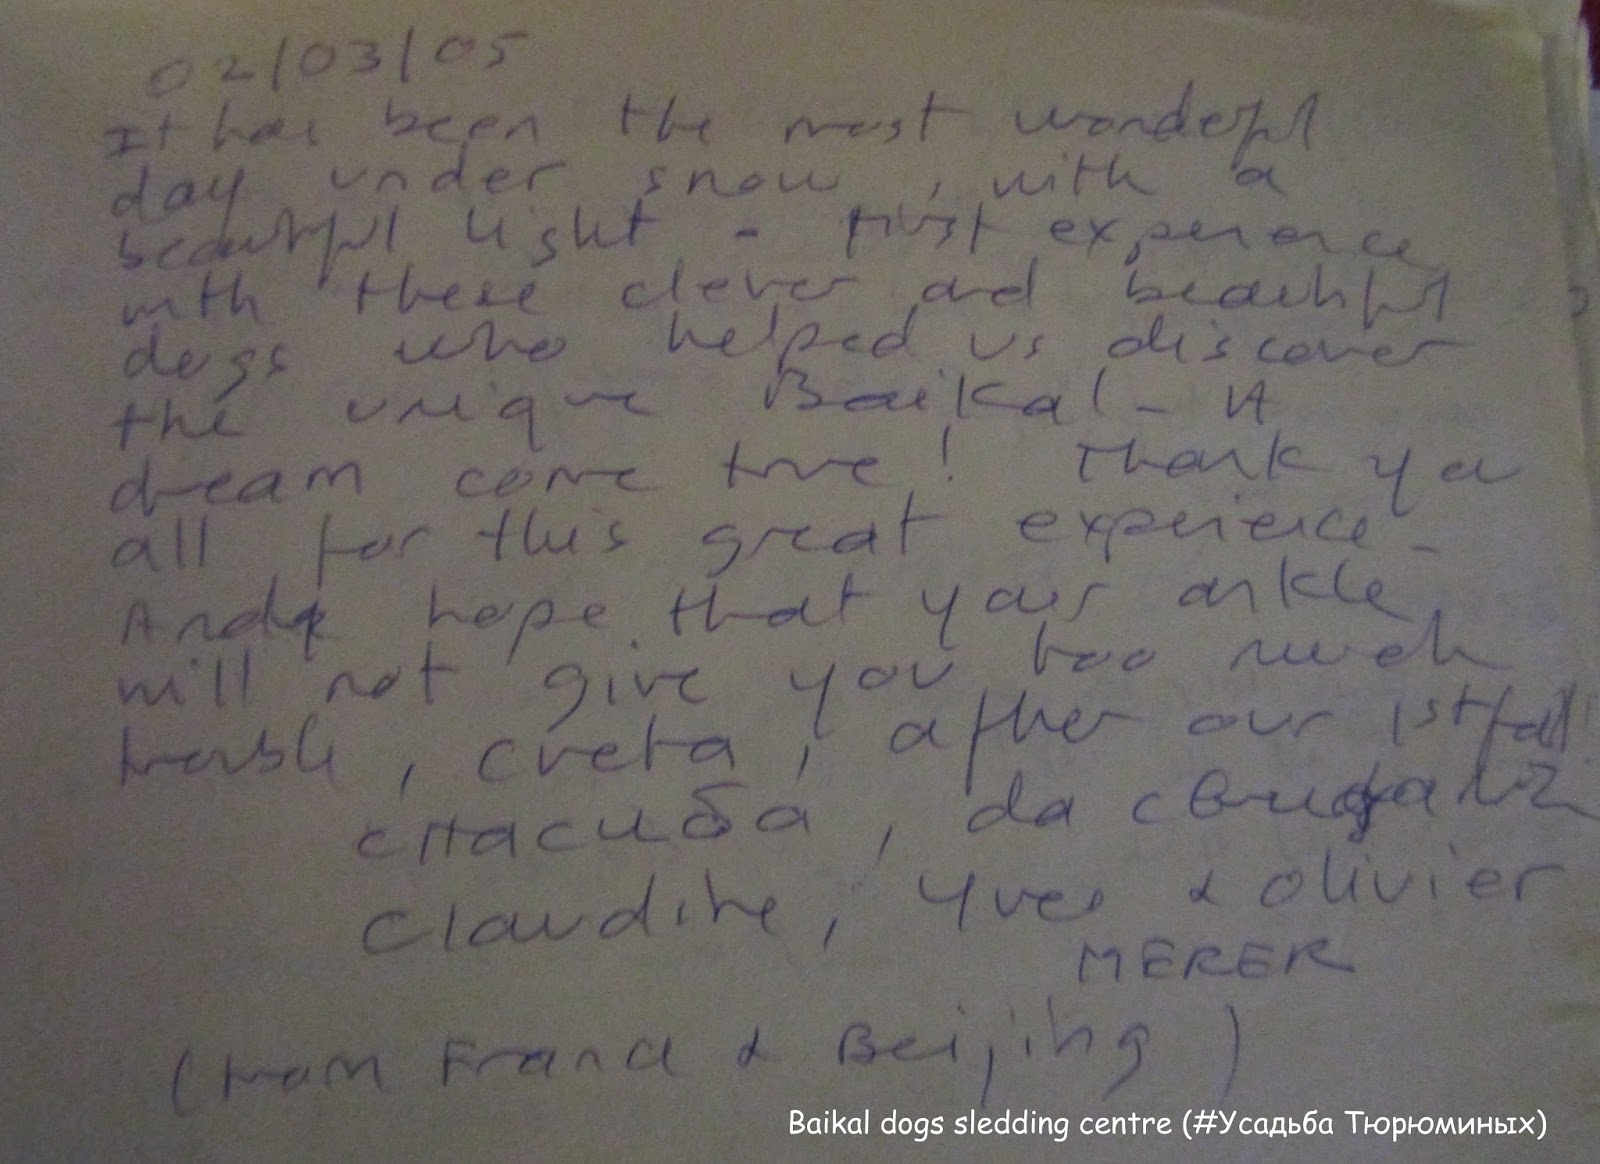 02/03/05
It has been the most wonderful
day under snow, with a
beautiful light - First experience
with these clever and beautiful
dogs who helped us discover
the unique Baikal - A
dream come true! Thank you
all for this great experience -
And hope that your ankle
will not give you too much
trouble, Cveta, after our 1st fall!
спасиба, da свидания
Claudine, Yves & Olivier
MERER
(from France & Beijing)
Baikal dogs sledding centre (#Усадьба Тюрюминых)